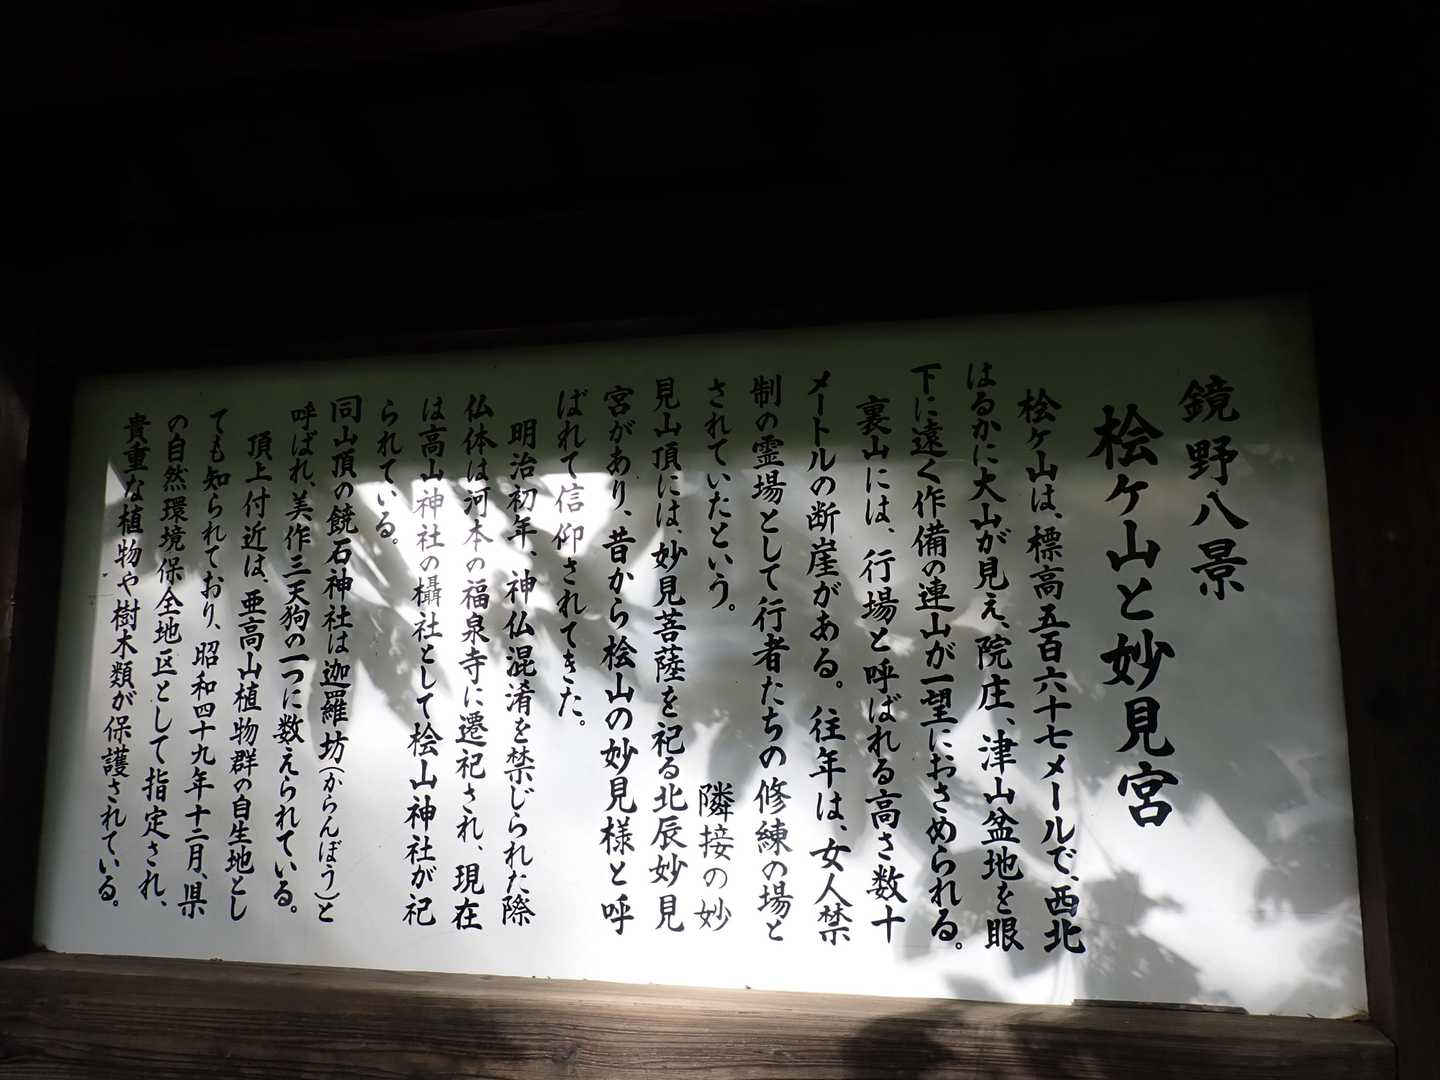 鏡野八景
桧ケ山と妙見宮
桧ケ山は、標高五百六十七メールで、西北
はるかに大山が見え、院庄、津山盆地を眼
下に遠く作備の連山が一望におさめられる。
裏山には、行場と呼ばれる高さ数十
メートルの断崖がある。往年は、女人禁
制の霊場として行者たちの修練の場と
されていたという。 隣接の妙
見山頂には、妙見菩薩を祀る北辰妙見
宮があり、昔から桧山の妙見様と呼
ばれて信仰されてきた。
明治初年、神仏混淆を禁じられた際
仏体は河本の福泉寺に遷祀され、現在
は高山神社の櫑社として桧山神社が祀
られている。
同山頂の鐃石神社は迦羅坊(からんぼう)と
呼ばれ、美作三天狗の一つに数えられている。
頂上付近は、亜高山植物群の自生地とし
ても知られており、昭和四十九年十二月、県
の自然環境保全地区として指定され、
貴重な植物や樹木類が保護されている。